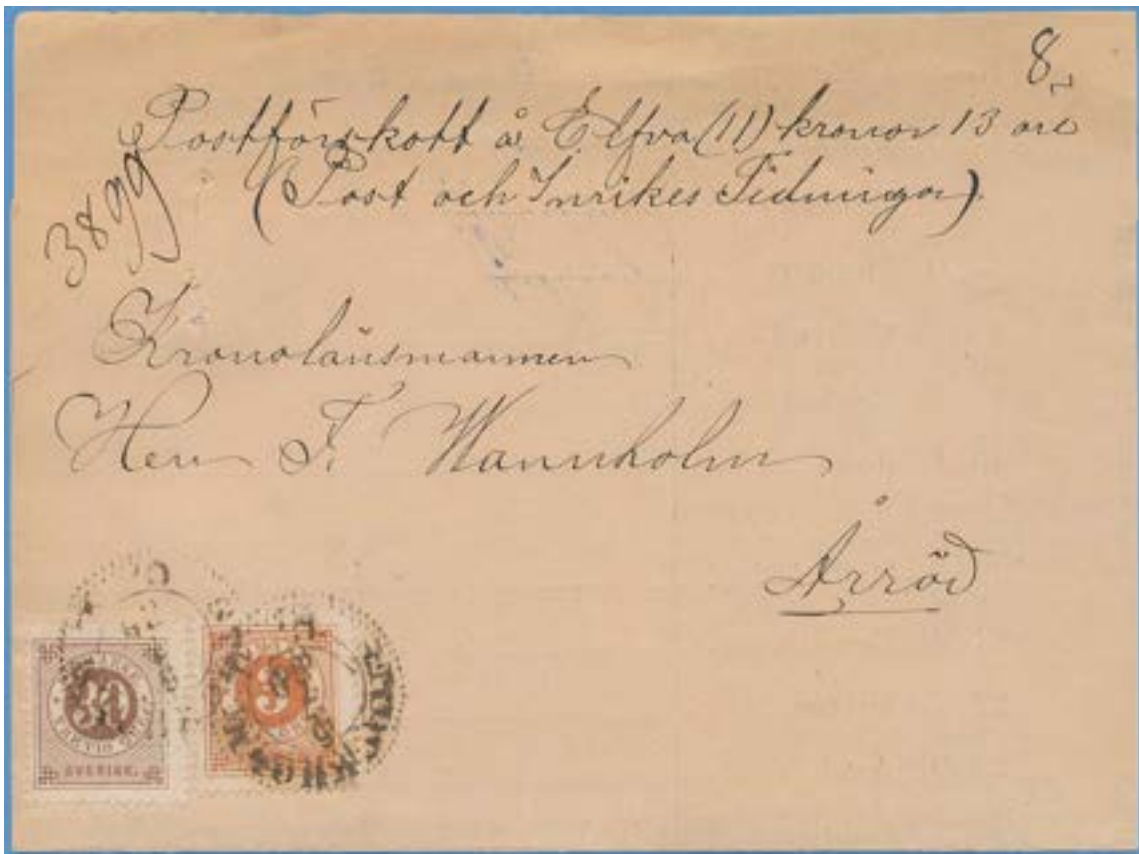 8
Postförskott å Elfva (11) kronor 13 öre
(Post och Inrikes Tidningar)
3899
Kronolänsmannen
Herr F. Wannholm
Årröd
SVERIGE.